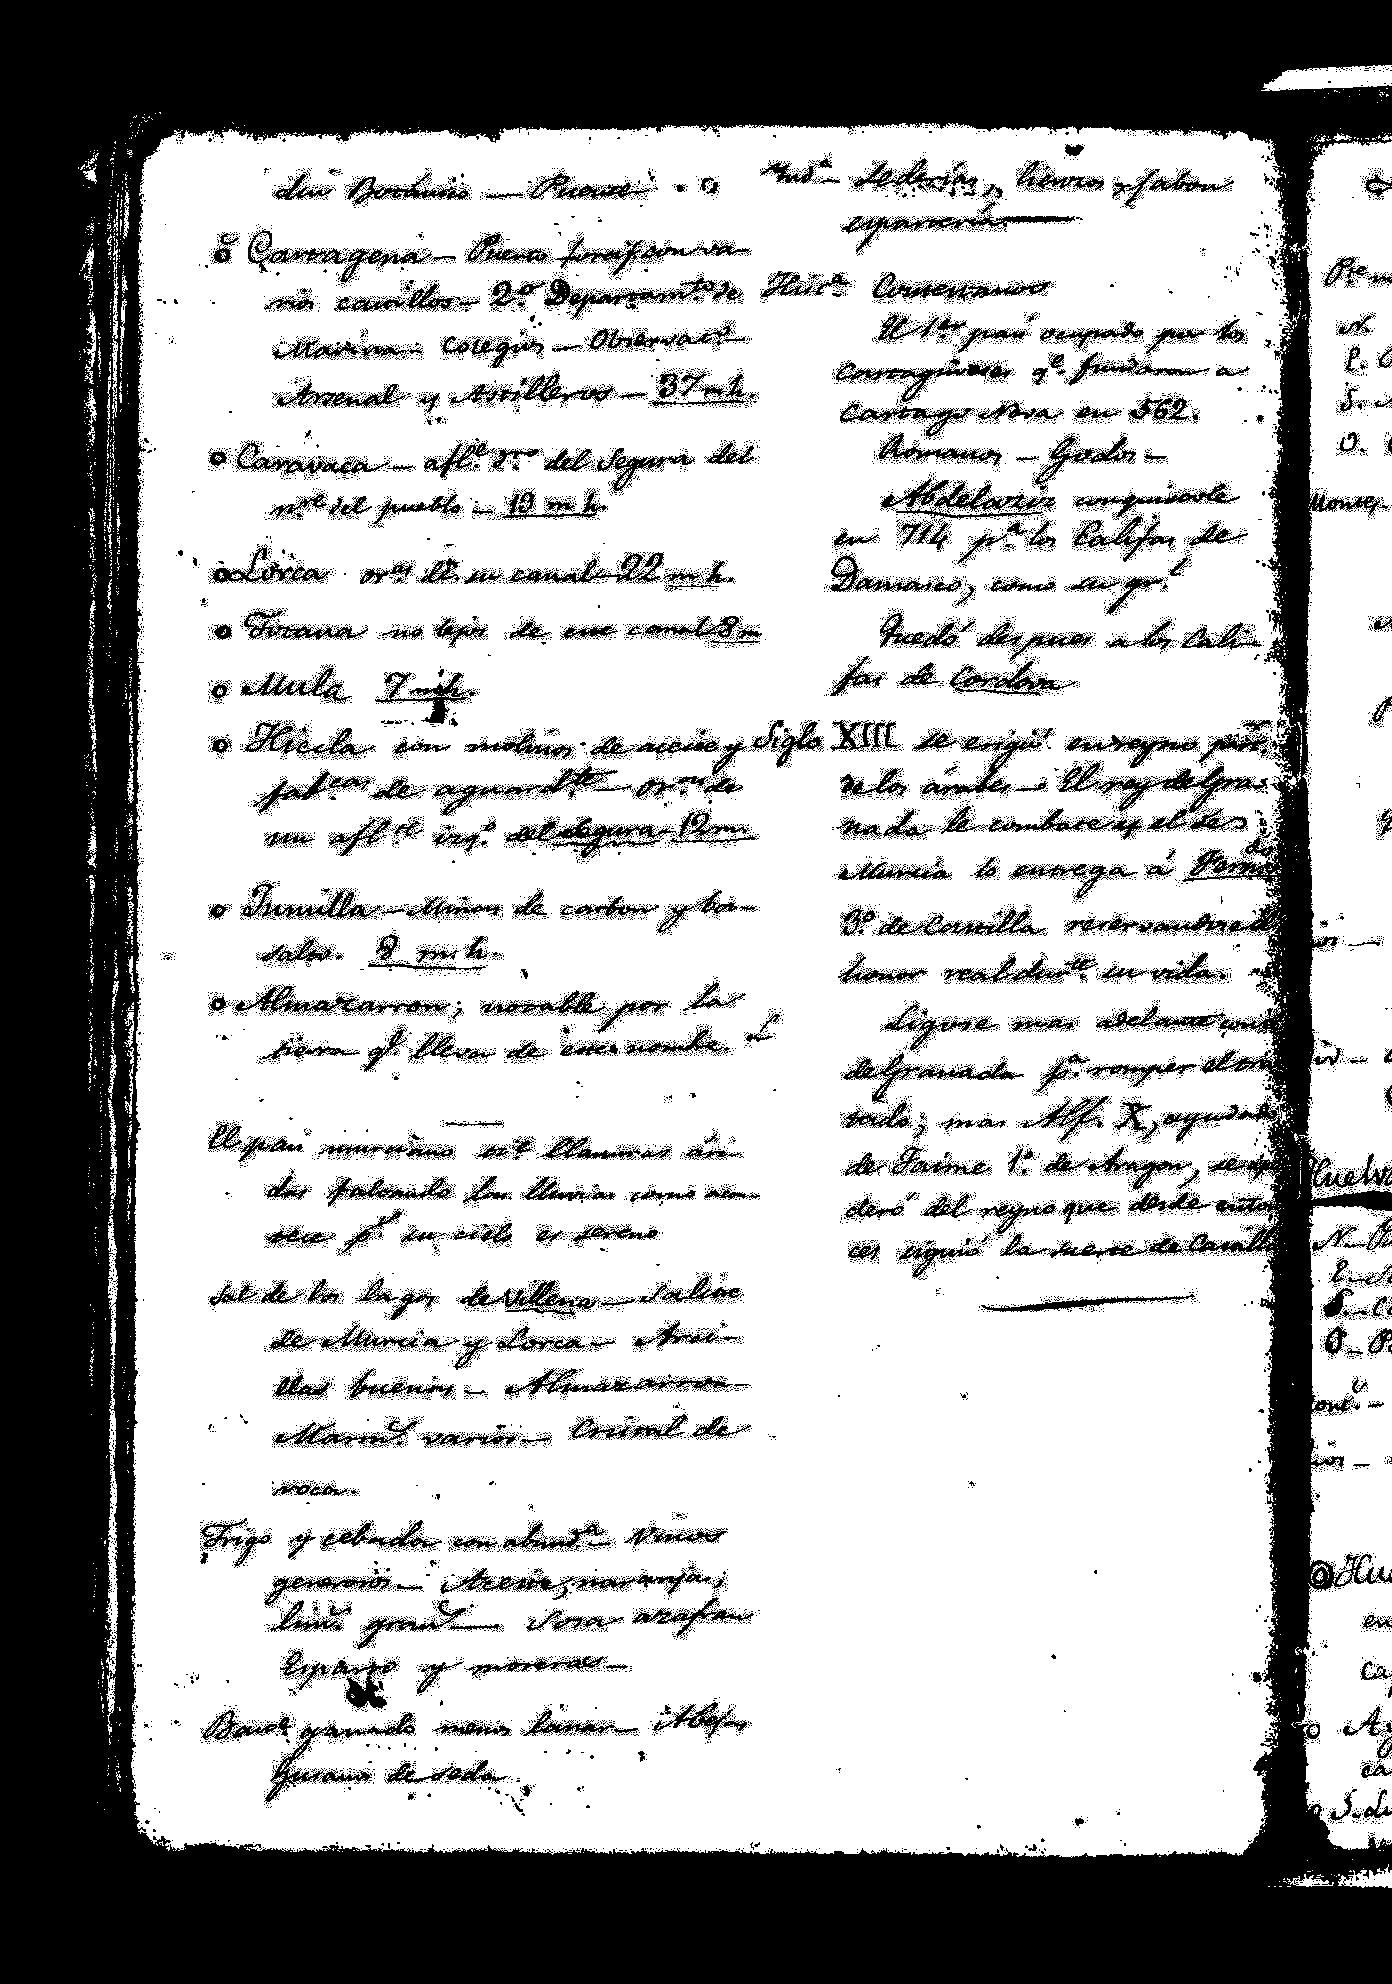 Botanico — Puente
Cartagena — Puerto
rios castillos — 2.º Departamto de
Marina — Colegios — Observat.
Arsenal y Astilleros — 37 m h.
Caravaca — afl.e del Segura del
n.te del pueblo — 19 m h.
Lorca su canal 22 m h.
Totana no lejos de ese canal 8 m
Mula 7 m h.
Hiecla con molinos de aceite y
fab.cas de aguard.te de
un afl.te izq.º del Segura 12 m
Jumilla — Minas de carbon y ba-
salto. 8 m. h.
Almazarron; notable por la
tierra q.e lleva de ese nombre
El pais murciano llanuras ári-
das faltando las lluvias como acon-
tece p.r su cielo es sereno
Sal de los lagos de Villena — Salinas
de Murcia y Lorca — Arci-
llas buenas — Almazarron
Marm.s varios — Cristal de
roca.
Trigo y cebada con abund.a Vinos
generosos — Aceite, naranjas,
lim.s gran.s — Sosa azafran
Esparto y moreras —
ganado menos lanar — Abejas
gusano de seda
Ind.a — Sederias, lienzos y jabon
esparteria
Hist.a Contestanos
El 1.er pais ocupado por los
Cartagineses q.e fundaron a
Cartago Nova en 562.
Romanos — Godos —
Abdelazis conquistole
en 714 p.a los Califas de
Damasco, como su gr.l
Quedó despues a los Cali-
fas de Cordova
Siglo XIII se erigió en reyno
de los árabes — El rey de Gra-
nada le combate y el de
Murcia lo entrega á Ferndo
3º de Castilla reservandose el
honor real durte su vida.
Ligose mas adelante con el
de Granada p.a romper el tra-
tado; mas Alf. X, ayudado
de Jaime 1.º de Aragon, se apo-
deró del reyno que desde enton-
ces siguió la suerte de Castilla
N.
S.
O.
Huelva
N —
S. —
O —